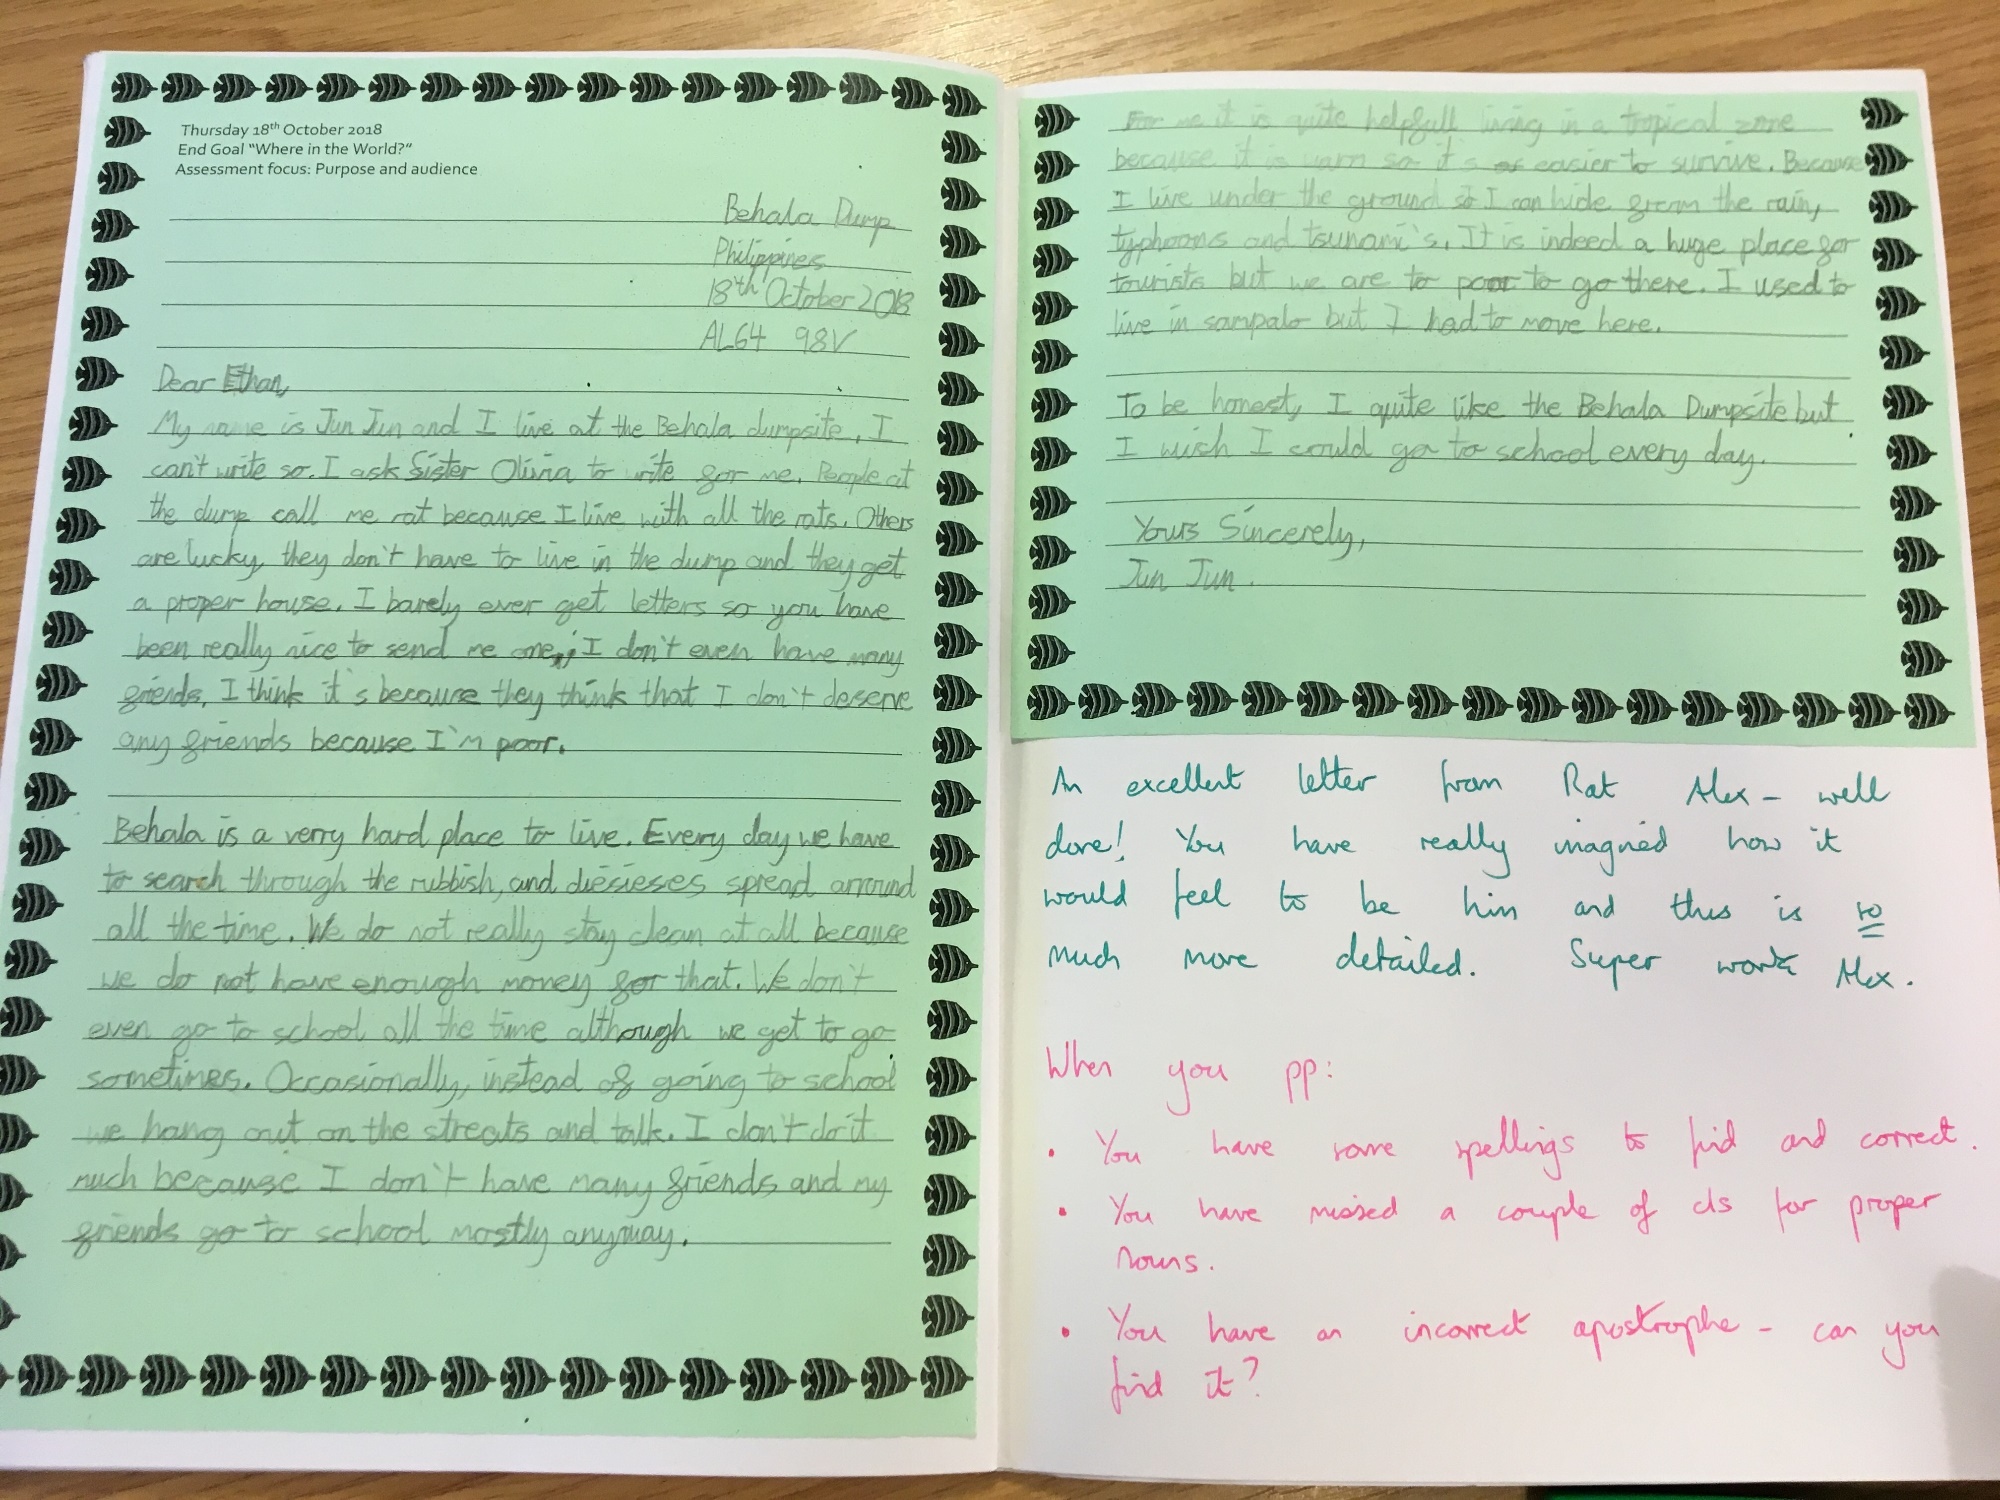 Thursday 18th October 2018
End Goal "Where in the World?"
Assessment focus: Purpose and audience
Behala Dump
Philippines
18th October 2018
AL64 98V
Dear Ethan,
My name is Jun Jun and I live at the Behala dumpsite, I
can't write so I ask Sister Olivia to write for me. People at
the dump call me rat because I live with all the rats. Others
are lucky, they don't have to live in the dump and they get
a proper house. I barely ever get letters so you have
been really nice to send me one; I don't even have many
friends. I think it's because they think that I don't deserve
any friends because I'm poor.
Behala is a verry hard place to live. Every day we have
to search through the rubbish, and diesieses spread arround
all the time. We do not really stay clean at all because
we do not have enough money for that. We don't
even go to school all the time although we get to go
sometimes. Occasionally, instead of going to school
we hang out on the streats and talk. I don't do it
much because I don't have many friends and my
friends go to school mostly anyway.
For me it is quite helpfull living in a tropical zone
because it is warm so it's easier to survive. Because
I live under the ground so I can hide from the rain,
typhoons and tsunami's. It is indeed a huge place for
tourists but we are to poor to go there. I used to
live in sampalo but I had to move here.
To be honest, I quite like the Behala Dumpsite but
I wish I could go to school every day.
Yours Sincerely,
Jun Jun.
An excellent letter from Rat Alex - well
done! You have really imagined how it
would feel to be him and this is so
much more detailed. Super work Alex.
When you pp:
• You have some spellings to find and correct.
• You have missed a couple of cls for proper
nouns.
• You have an incorrect apostrophe - can you
find it?